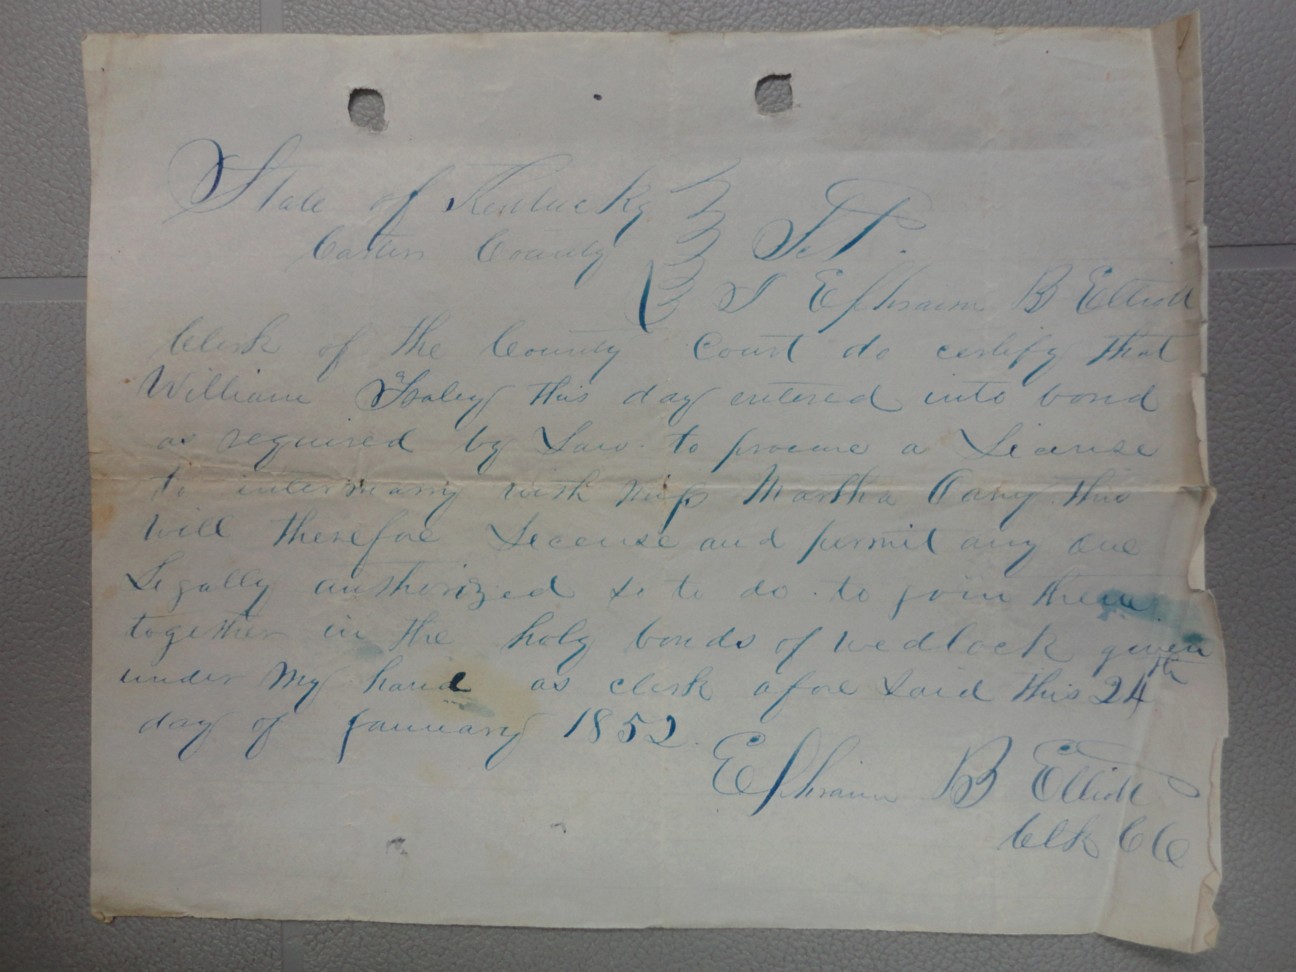 State of Kentucky
Carter County Sct.
I Ephraim B Elliott
Clerk of the County Court do certify that
William this day entered into bond
as required by Law to procure a License
to intermarry with miss Martha this
will therefore License and permit any one
Legally authorized so to do to join them
together in the holy bonds of wedlock given
under my hand as clerk afore said this 24th
day of January 1852
Ephraim B Elliott
Clk C C